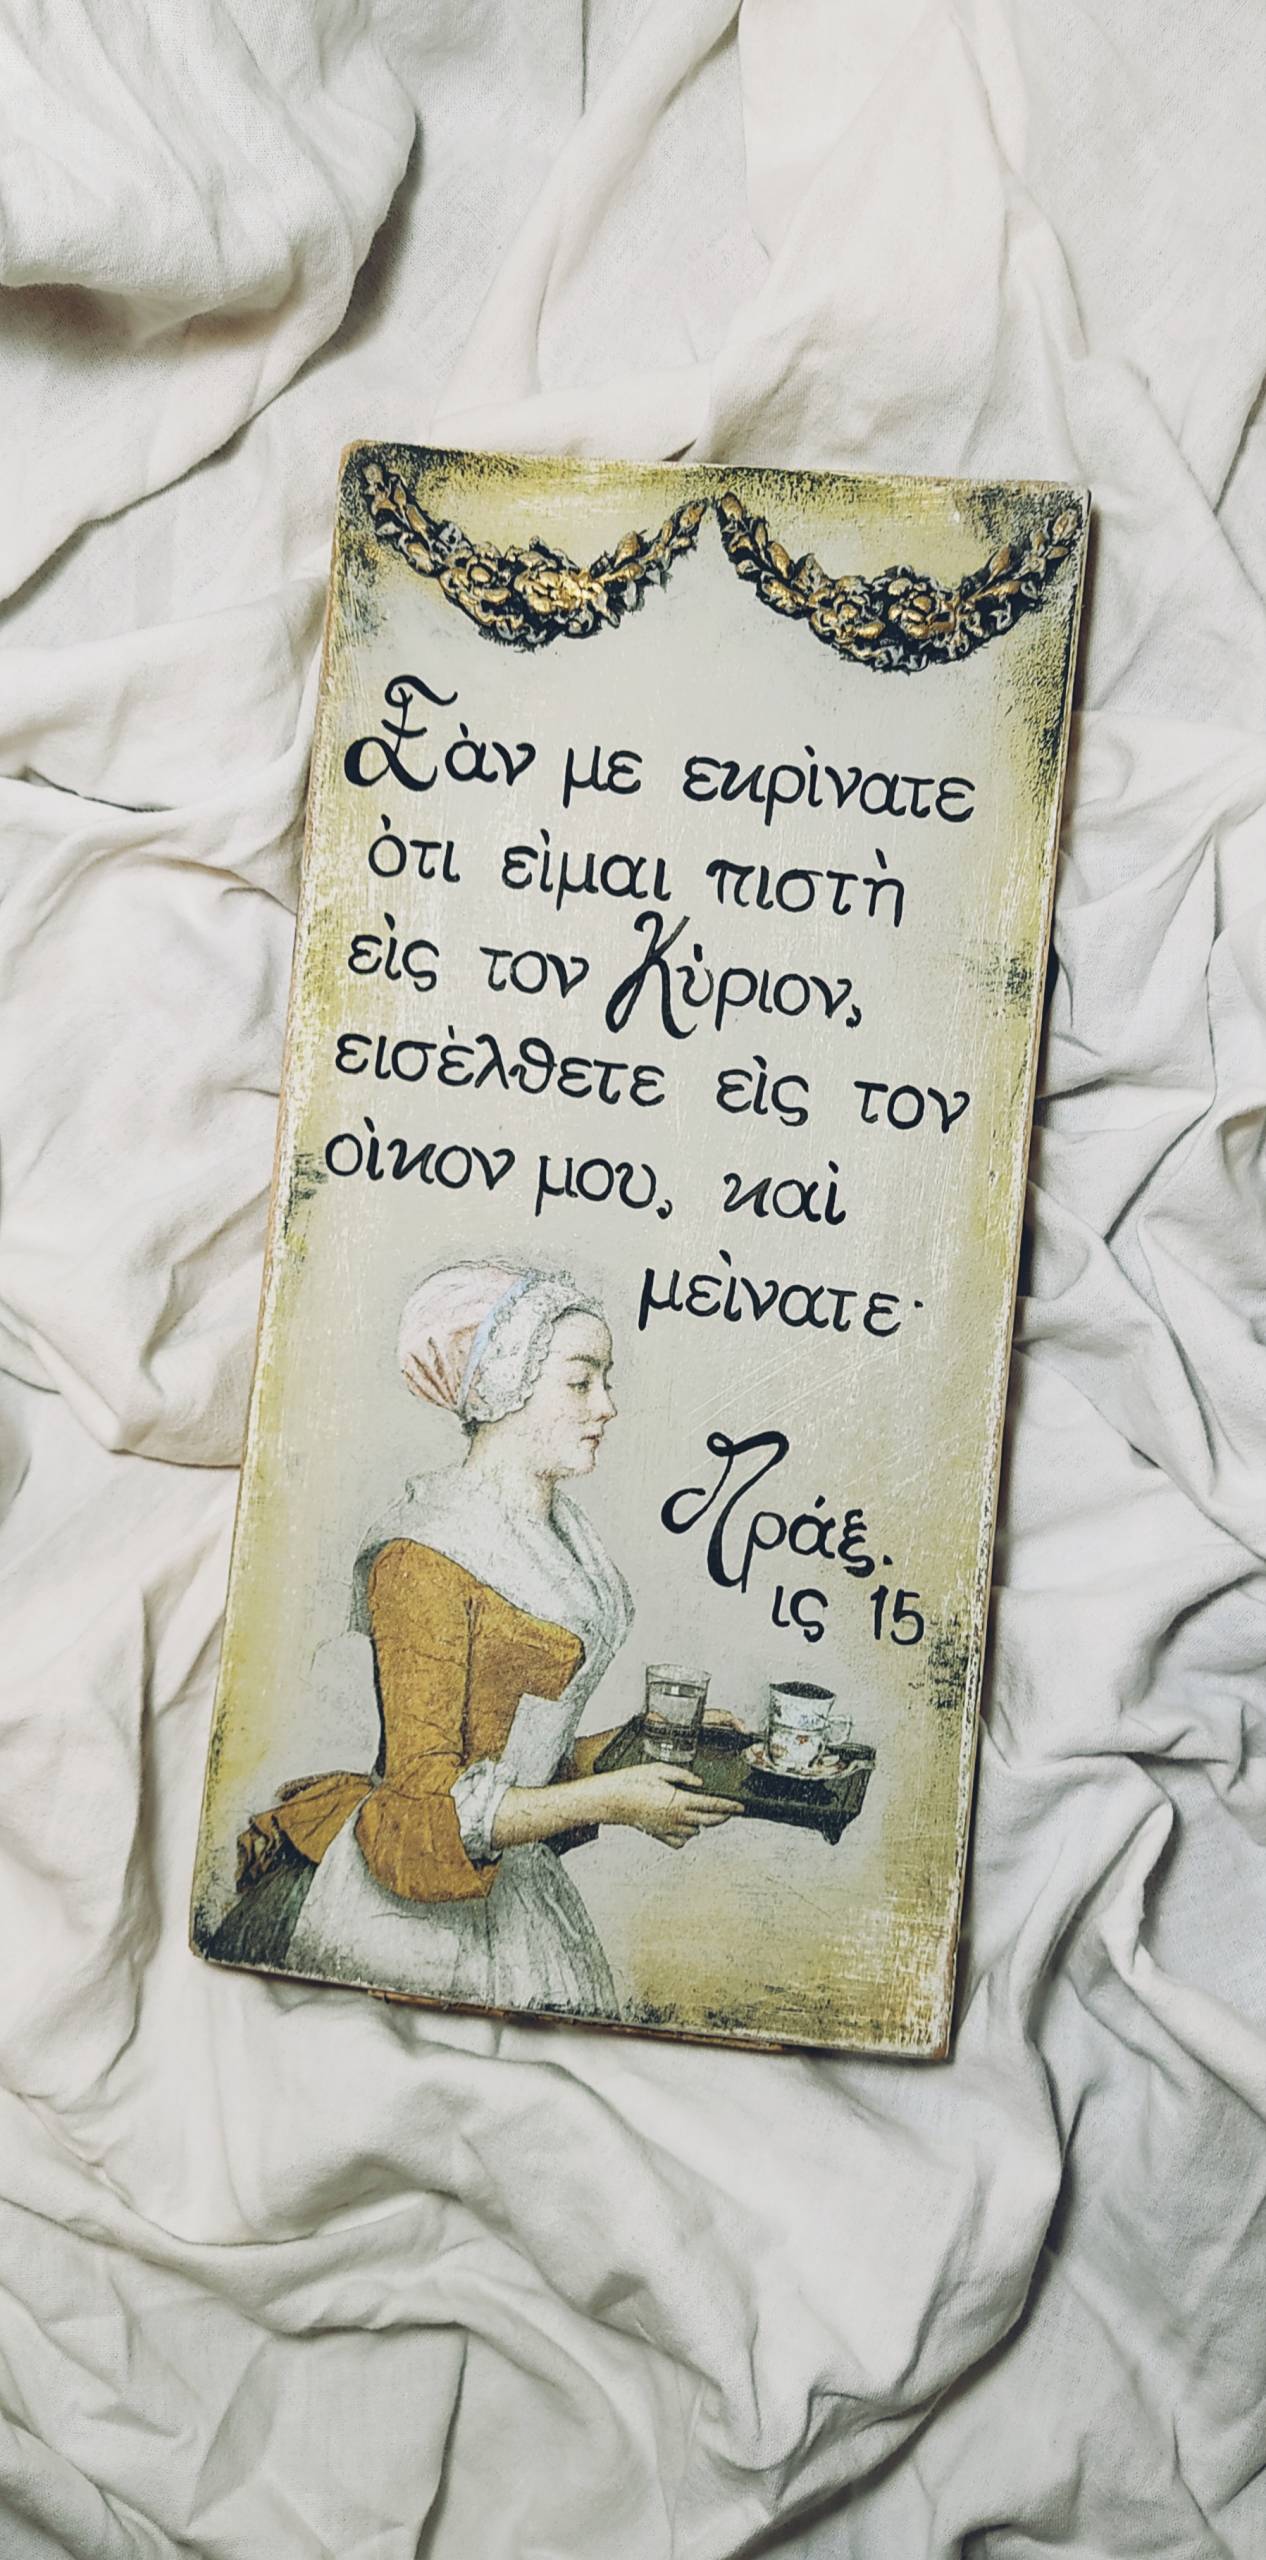 Ἐὰν με εκρὶνατε
ὸτι εὶμαι πιστὴ
εὶς τον Κὺριον,
εισὲλθετε εὶς τον
οὶκον μου, καὶ
μεὶνατε·
Πράξ.
ις 15